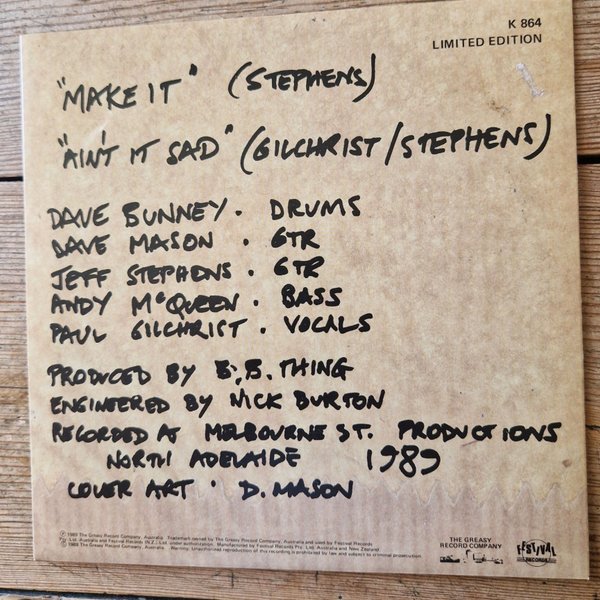 K 864
LIMITED EDITION
"MAKE IT" (STEPHENS)
"AIN'T IT SAD" (GILCHRIST/STEPHENS)
DAVE BUNNEY. DRUMS
DAVE MASON. GTR
JEFF STEPHENS. GTR
ANDY McQUEEN. BASS
PAUL GILCHRIST. VOCALS
PRODUCED BY B.B. THING
ENGINEERED BY NICK BURTON
RECORDED AT MELBOURNE ST. PRODUCTIONS
NORTH ADELAIDE 1989
COVER ART · D. MASON
Ⓟ 1989 The Greasy Record Company, Australia. Trademark owned by The Greasy Record Company, Australia and used by Festival Records
Pty. Ltd. Australia and Festival Records (N.Z.) Ltd. under authorization. Manufactured by Festival Records Pty. Ltd. Australia and New Zealand
© 1989 The Greasy Record Company, Australia. Warning: Unauthorized reproduction of this recording is prohibited by law and subject to criminal prosecution.
THE GREASY
RECORD COMPANY
FESTIVAL
RECORDS